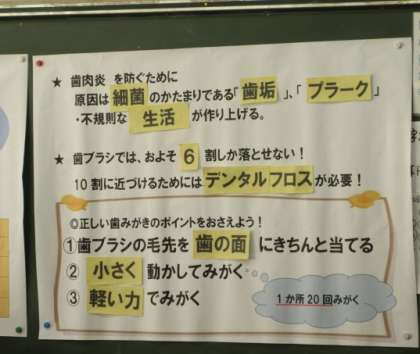 ★ 歯肉炎 を防ぐために
原因は 細菌 のかたまりである「歯垢」、「プラーク」
・不規則な 生活 が作り上げる。
★ 歯ブラシでは、およそ 6 割しか落とせない！
10割に近づけるためには デンタルフロス が必要！
◎正しい歯みがきのポイントをおさえよう！
①歯ブラシの毛先を 歯の面 にきちんと当てる
② 小さく 動かしてみがく
③ 軽い力 でみがく
1か所20回みがく